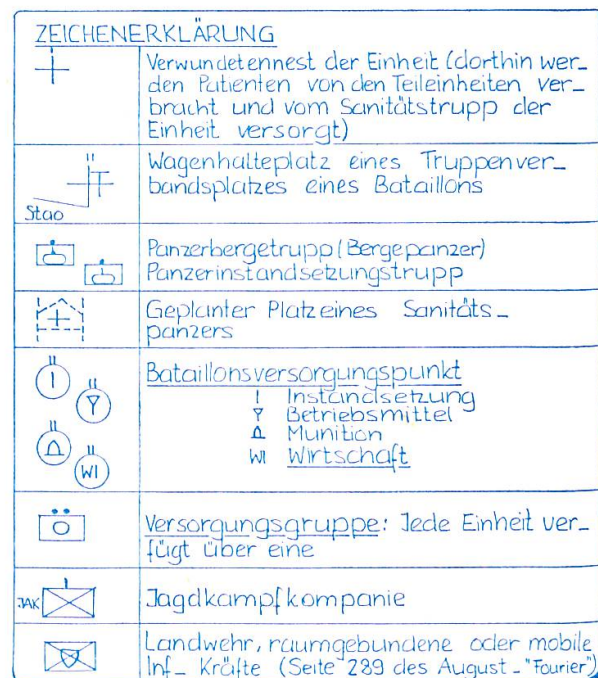 ZEICHENERKLÄRUNG
Verwundetennest der Einheit (dorthin wer_
den Patienten von den Teileinheiten ver_
bracht und vom Sanitätstrupp der
Einheit versorgt)
Wagenhalteplatz eines Truppenver_
bandsplatzes eines Bataillons
Stao
Panzerbergetrupp (Bergepanzer)
Panzerinstandsetzungstrupp
Geplanter Platz eines Sanitäts_
panzers
Bataillonsversorgungspunkt
I Instandsetzung
Betriebsmittel
Munition
WI Wirtschaft
I
WI
Versorgungsgruppe: Jede Einheit ver_
fügt über eine
JAK Jagdkampfkompanie
Landwehr, raumgebundene oder mobile
Inf_ Kräfte (Seite 289 des August_"Fourier")